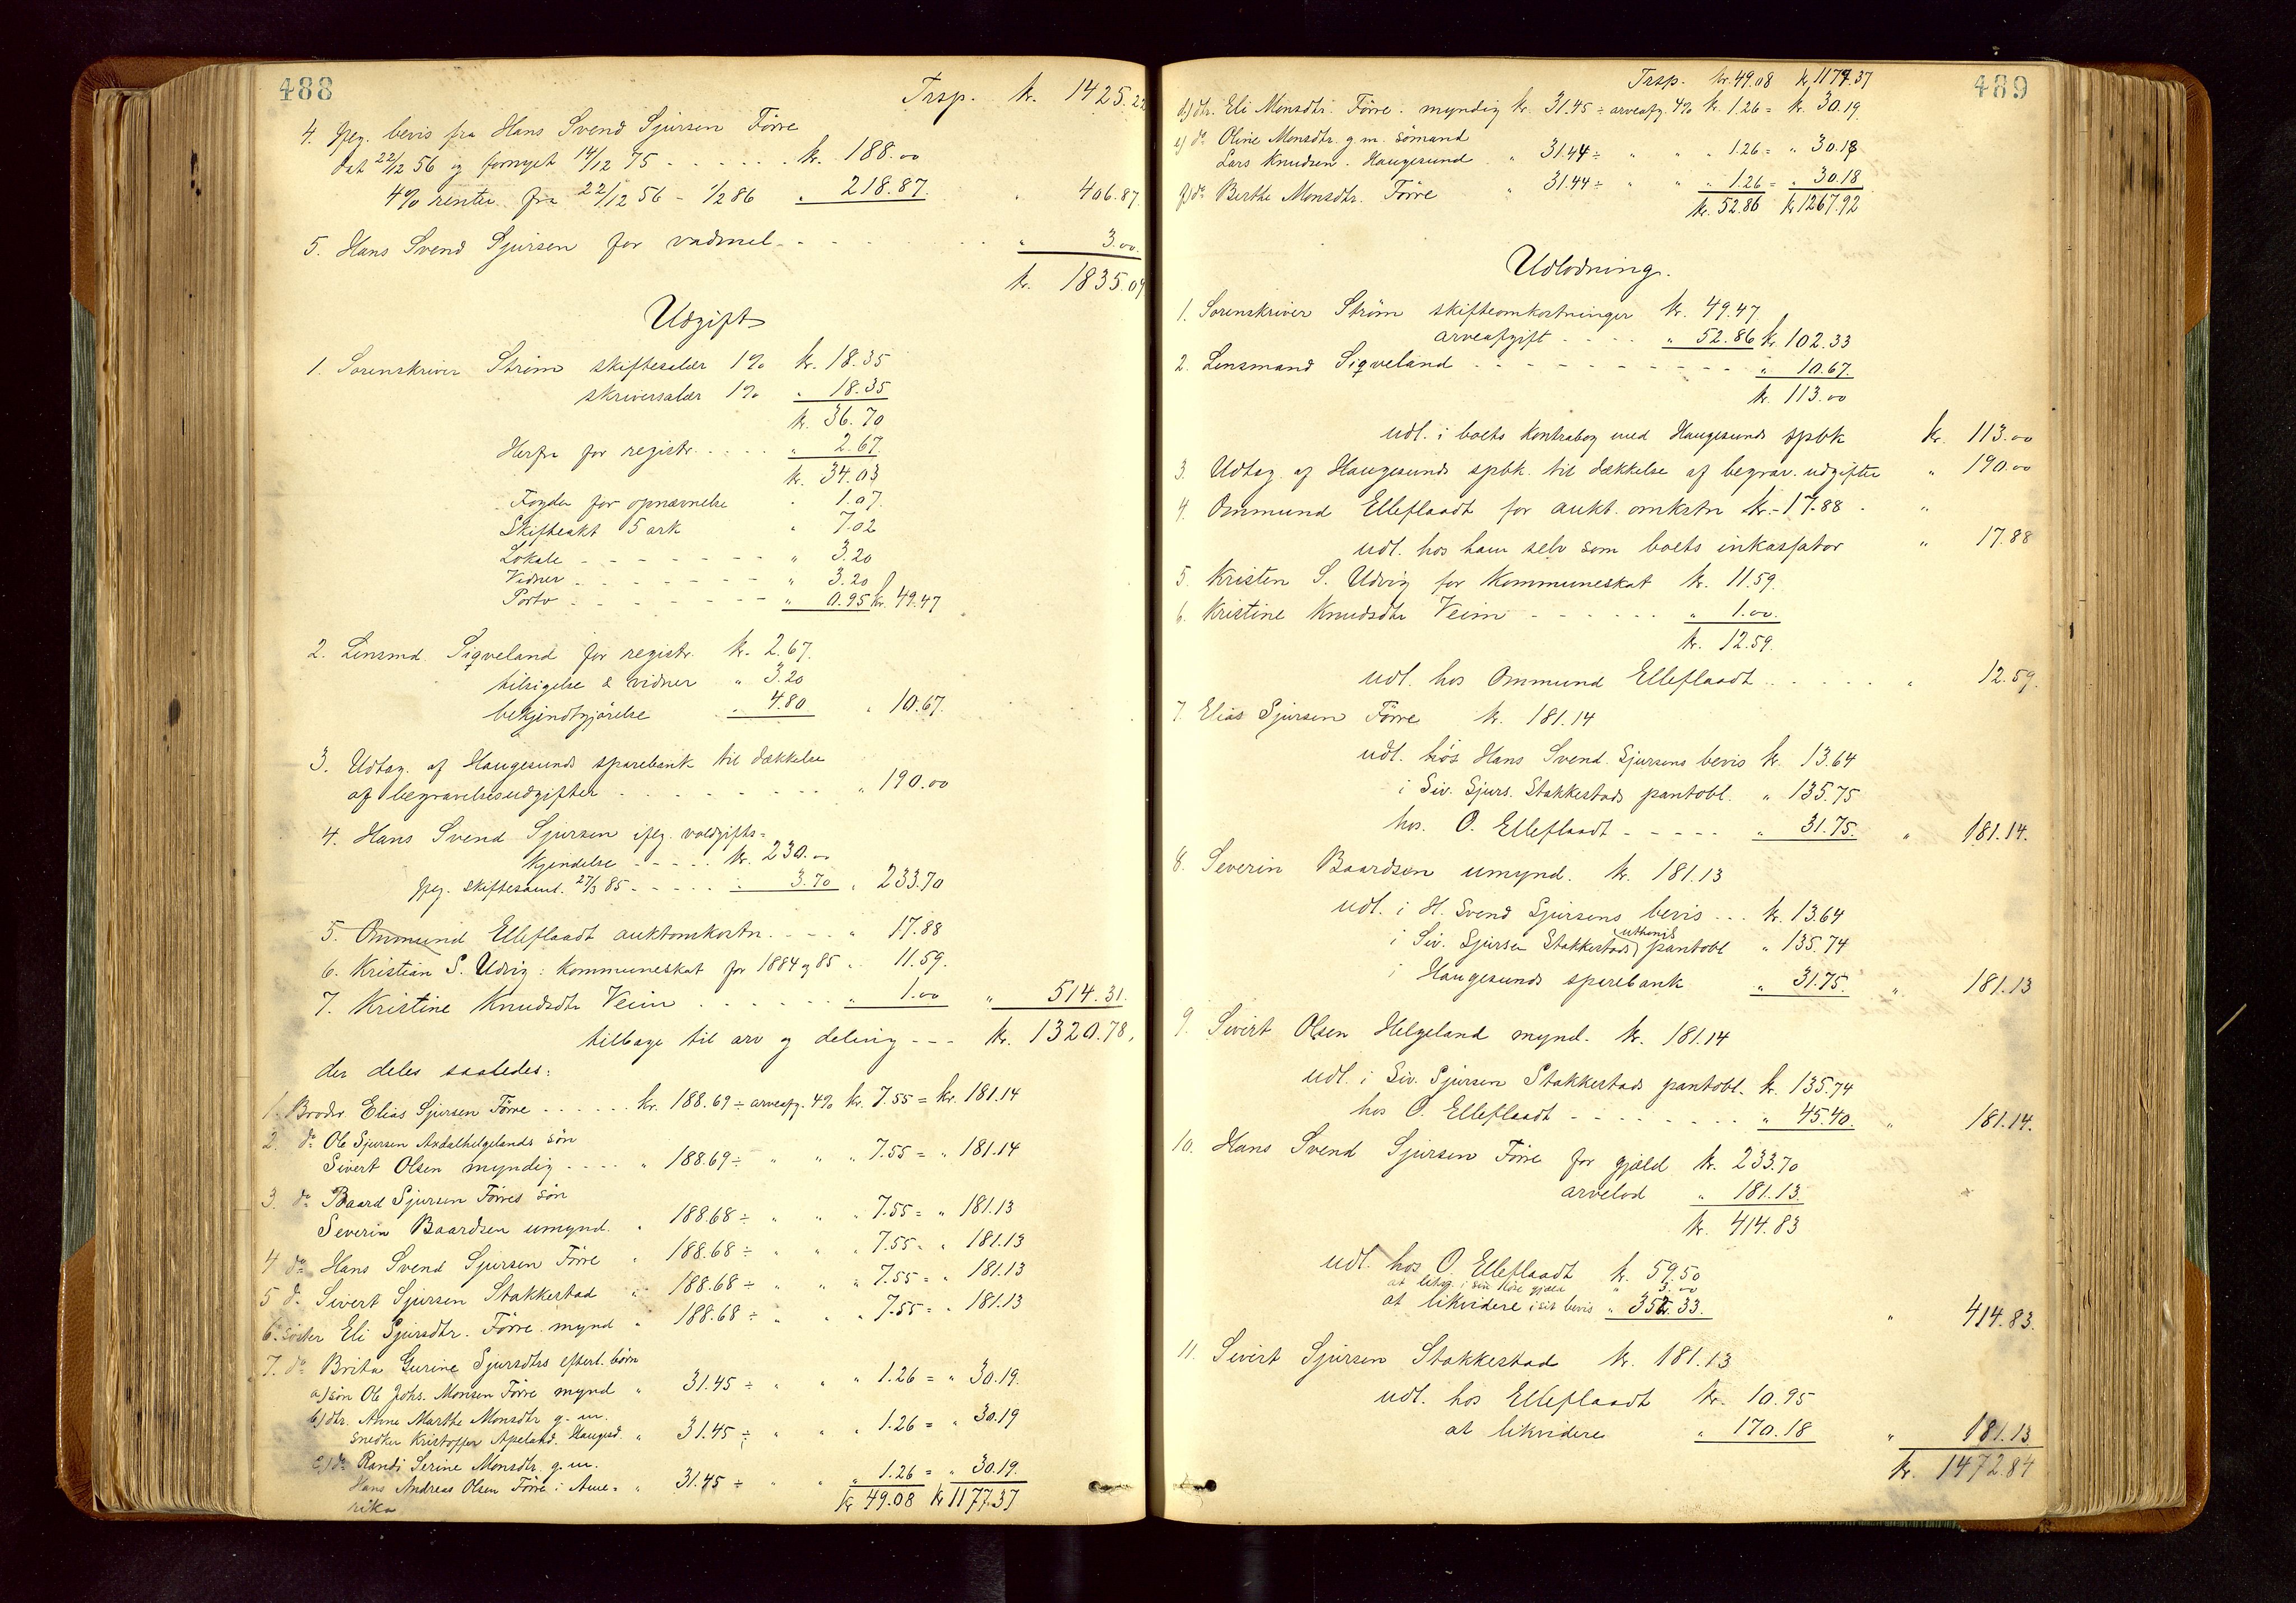 488
Trsp. kr. 1425.22
4. Ifølg. bevis fra Hans Svend Sjursen Førre
dat 22/12 56 og fornyet 14/12 75 - - - - - - kr. 188.00
4% renter fra 22/12 56 - 1/2 86 " 218.87. " 406.87.
5. Hans Svend Sjursen for vadmel - - - - - - " 3.00.
kr. 1835.09
Udgift
1. Sorenskriver Strøm skiftesalær 1% kr. 18.35
skriversalær 1% " 18.35
kr. 36.70
Herfra for registr. - - - - " 2.67.
kr. 34.03
Fogden for opnævnelse " 1.07.
Skifteakt 5 ark " 7.02
Lokale - - - - - - - " 3.20
Vidner - - - - - - - " 3.20
Porto - - - - - - - " 0.95 kr. 49.47
2. Lensmd. Siqveland for registr. kr. 2.67.
tilsigelse 2 vidner " 3.20
bekjendtgjørelse " 4.80 " 10.67.
3. Udtag. af Haugesunds sparebank til dækkelse
af begravelsesudgifter - - - - - - - - " 190.00
4. Hans Svend Sjursen iflg. voldgifts=
kjendelse - - - - - kr. 230.00
Iflg. skiftesaml. 27/3 85 - - - - - " 3.70 " 233.70
5. Ommund Elleflaadt auktomkostn. - - - - " 17.88
6. Kristian S. Udvig: kommuneskat for 1884 og 85 " 11.59.
7. Kristine Knudsdtr Veim - - - - - - " 1.00 " 514.31.
tilbage til arv og deling - - - kr. 1320.78.
der deles saaledes:
1. Broder Elias Sjursen Førre - - - - - - kr. 188.69 ÷ arveafg. 4% kr. 7.55 = kr. 181.14
2. do Ole Sjursen Axdalhelgelands søn
Sivert Olsen myndig - - - - " 188.69 ÷ " " " 7.55 = " 181.14
3. do Baard Sjursen Førres søn
Severin Baardsen umynd. " 188.68 ÷ " " " 7.55 = " 181.13
4 do Hans Svend Sjursen Førre " 188.68 ÷ " " " 7.55 = " 181.13
5 do Sivert Sjursen Stakkestad " 188.68 ÷ " " " 7.55 = " 181.13
6. søster Eli Sjursdtr. Førre mynd " 188.68 ÷ " " " 7.55 = " 181.13
7. do Brita Gurine Sjursdtrs efterl. børn
a) søn Ole Johs. Monsen Førre mynd " 31.45 ÷ " " " 1.26 = " 30.19.
b) dtr. Anne Marthe Monsdtr g. m.
snedker Kristoffer Apeland. Haugesd. " 31.45 ÷ " " " 1.26 = " 30.19
c) do Randi Serine Monsdtr. g. m.
Hans Andreas Olsen Førre i Ame- " 31.45 ÷ " " " 1.26 = " 30.19.
rika kr 49.08 kr 1177.37
489
Trsp. kr. 49.08 kr. 1177.37
d) dtr. Eli Monsdtr. Førre. myndig kr. 31.45 ÷ arveafg. 4% kr. 1.26 = kr. 30.19.
e) do Oline Monsdtr. g. m. sømand
Lars Knudsen. Haugesund " 31.44 ÷ " " " 1.26 = " 30.18
f) do Berthe Monsdtr. Førre " 31.44 ÷ " " " 1.26 = " 30.18
kr. 52.86 kr 1267.92
Udlodning.
1. Sorenskriver Strøm skifteomkostninger kr. 49.47.
arveafgift - - - - " 52.86 kr. 102.33
2. Lensmand Siqveland - - - - - - - - - - " 10.67.
kr. 113.00
udl. i boets kontrabog med Haugesunds spbk kr. 113.00
3. Udtag af Haugesunds spbk. til dækkelse af begrav. udgifter " 190.00
4. Ommund Elleflaadt for aukt. omkstn kr. 17.88 - "
udl. hos ham selv som boets inkassator " 17.88
5. Kristen S. Udvig for kommuneskat kr. 11.59.
6. Kristine Knudsdtr Veim - - - - - - " 1.00.
kr. 12.59.
udl. hos Ommund Elleflaadt - - - - - - " 12.59.
7. Elias Sjursen Førre kr. 181.14
udl. hos Hans Svend Sjursens bevis kr. 13.64
i Siv. Sjurs. Stakkestads pantobl. " 135.75
hos. O. Elleflaadt - - - - - " 31.75. " 181.14.
8. Severin Baardsen umynd. kr. 181.13
udl. i H. Svend Sjursens bevis - - - kr. 13.64
i Siv. Sjursen Stakkestads pantobl " 135.74
i Haugesunds sparebank " 31.75. " 181.13
9. Sivert Olsen Helgeland mynd. kr. 181.14
udl. i Siv. Sjursen Stakkestads pantobl. kr. 135.74
hos O. Elleflaadt - - - - - - - - " 45.40. " 181.14.
10. Hans Svend Sjursen Førre for gjæld kr. 233.70
arvelod " 181.13.
kr. 414.83
udl. hos O. Elleflaadt kr. 59.50
at likv. i sin gjæld " 3.00
at likvidere i sit bevis " 352.33. " 414.83.
11. Sivert Sjursen Stakkestad kr. 181.13
udl. hos Elleflaadt kr. 10.95
at likvidere " 170.18 " 181.13
kr. 1472.84